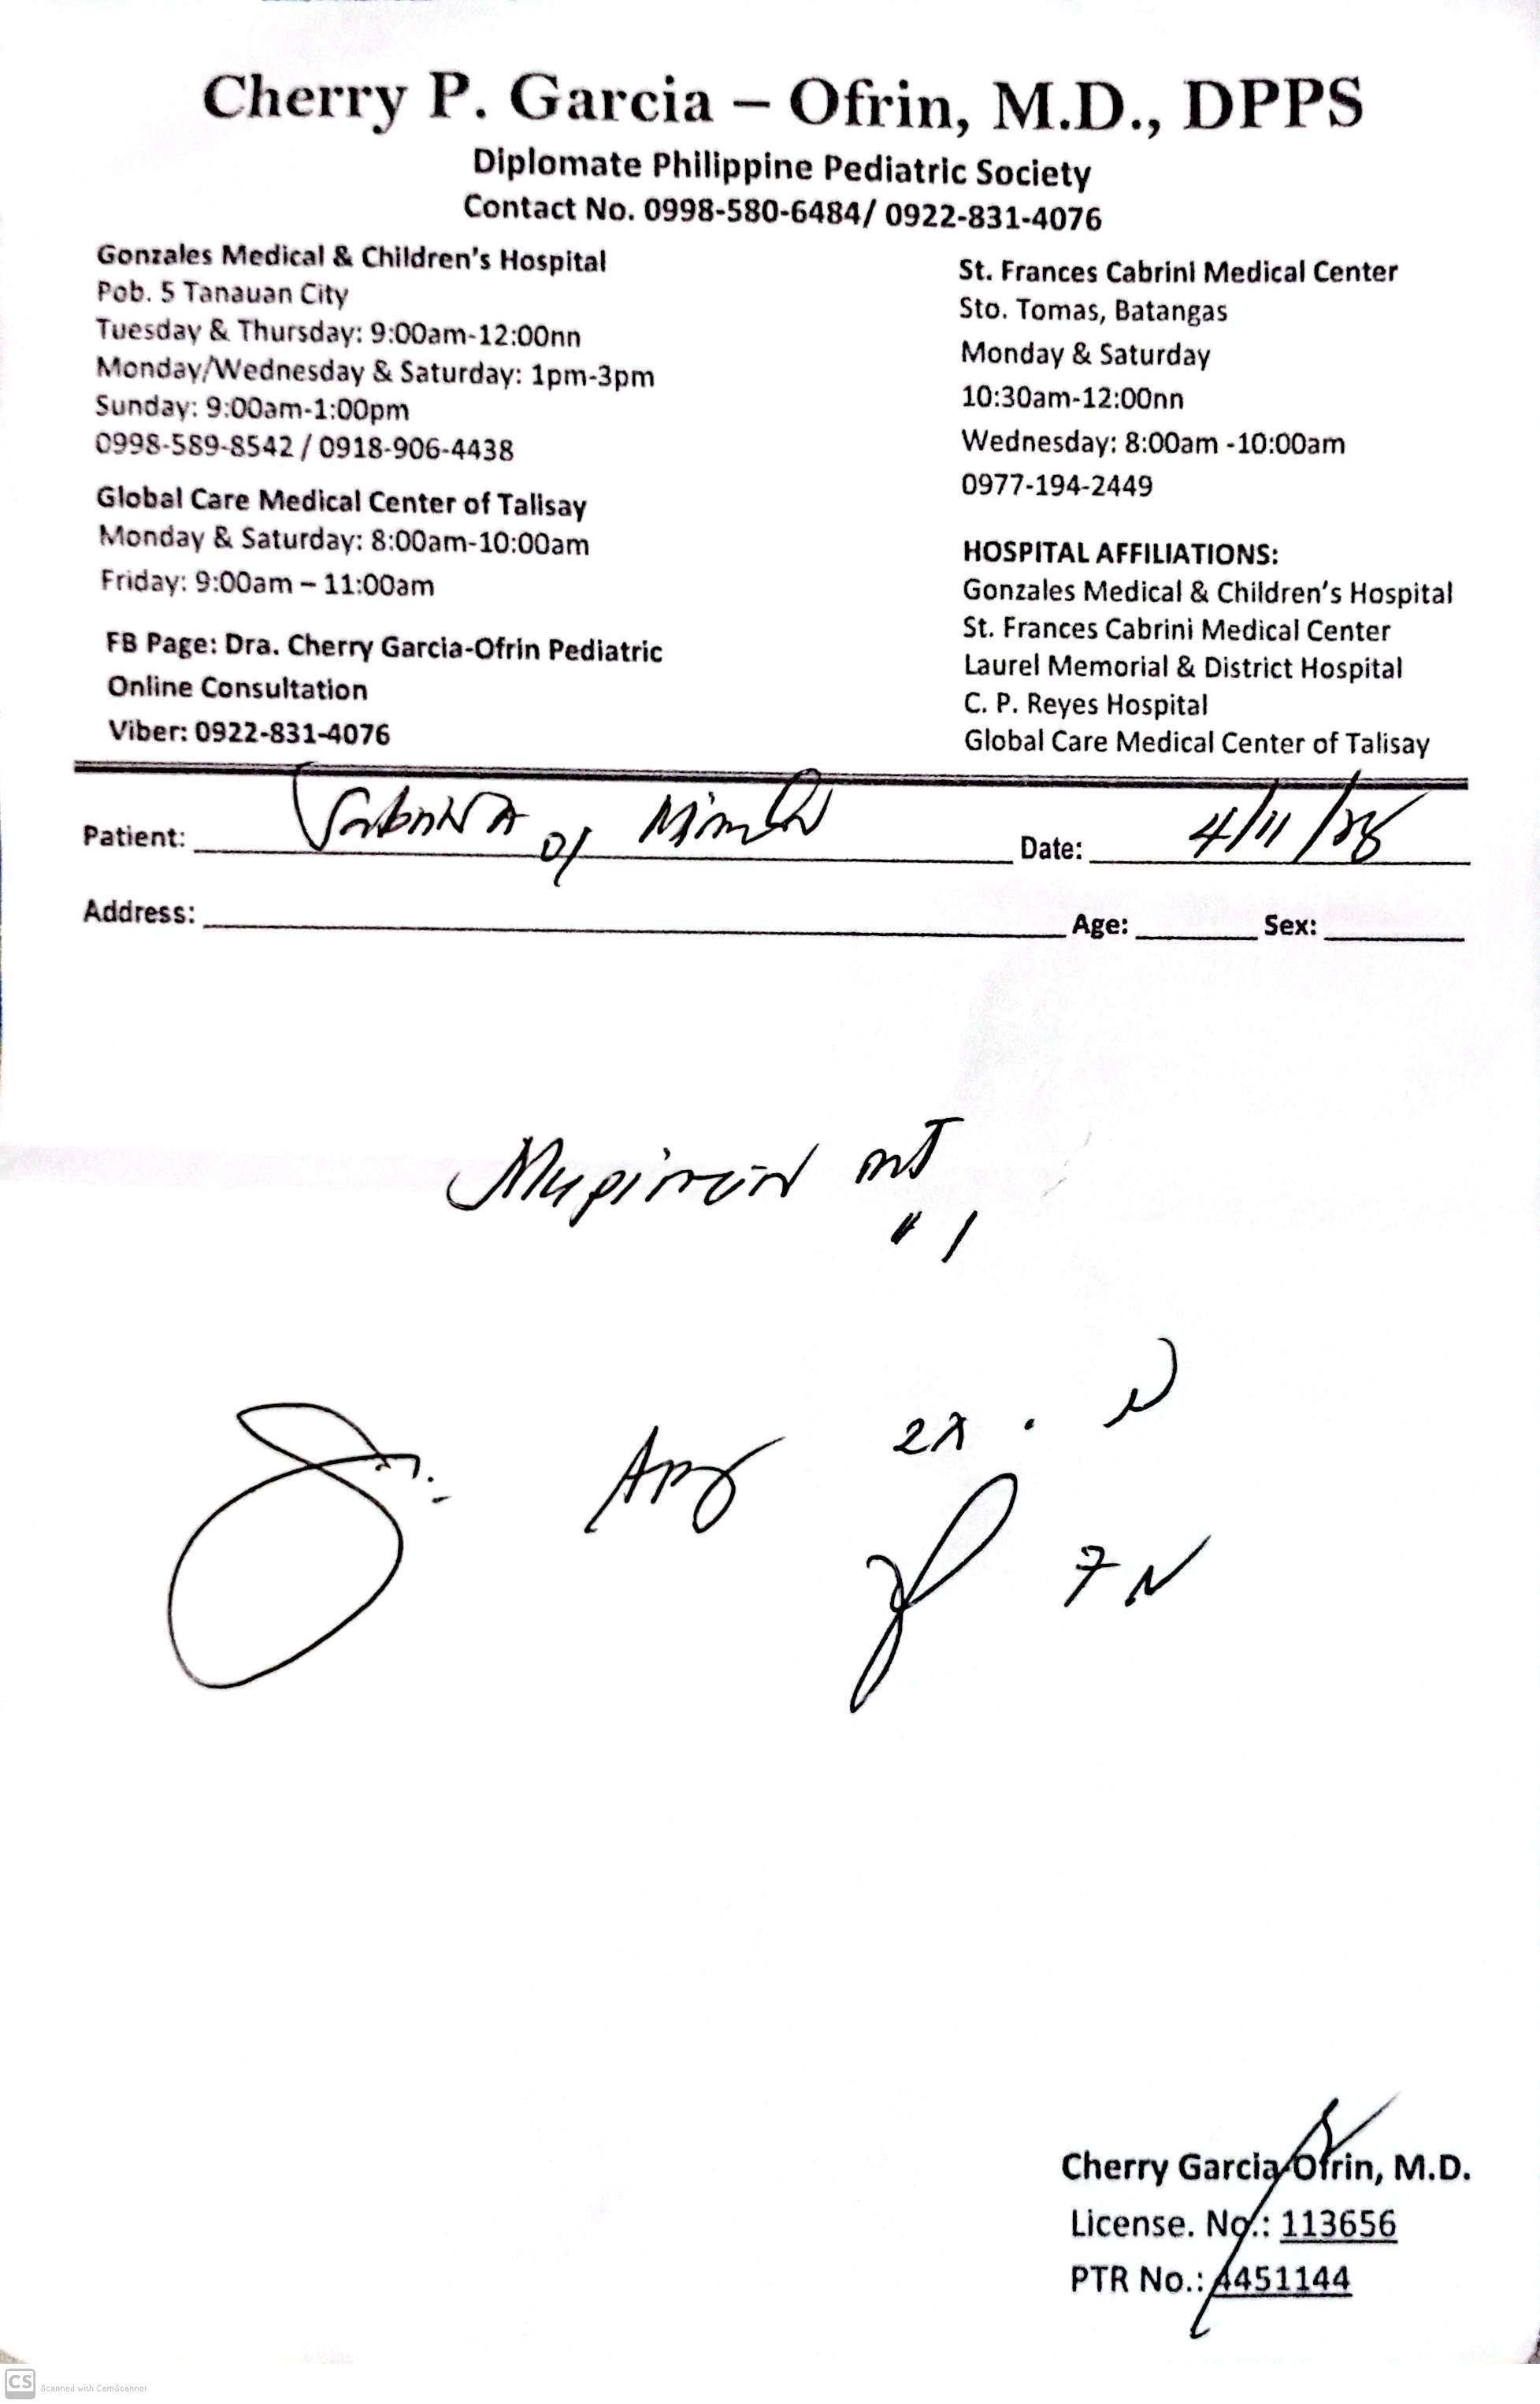 Cherry P. Garcia – Ofrin, M.D., DPPS
Diplomate Philippine Pediatric Society
Contact No. 0998-580-6484/ 0922-831-4076
Gonzales Medical & Children's Hospital
Pob. 5 Tanauan City
Tuesday & Thursday: 9:00am-12:00nn
Monday/Wednesday & Saturday: 1pm-3pm
Sunday: 9:00am-1:00pm
0998-589-8542 / 0918-906-4438
Global Care Medical Center of Talisay
Monday & Saturday: 8:00am-10:00am
Friday: 9:00am – 11:00am
FB Page: Dra. Cherry Garcia-Ofrin Pediatric
Online Consultation
Viber: 0922-831-4076
St. Frances Cabrini Medical Center
Sto. Tomas, Batangas
Monday & Saturday
10:30am-12:00nn
Wednesday: 8:00am -10:00am
0977-194-2449
HOSPITAL AFFILIATIONS:
Gonzales Medical & Children's Hospital
St. Frances Cabrini Medical Center
Laurel Memorial & District Hospital
C. P. Reyes Hospital
Global Care Medical Center of Talisay
Patient: Date: 4/11/
Address: Age: Sex:
Mupirocin
#1
2x
7
Cherry Garcia-Ofrin, M.D.
License. No.: 113656
PTR No.: 4451144
CS Scanned with CamScanner